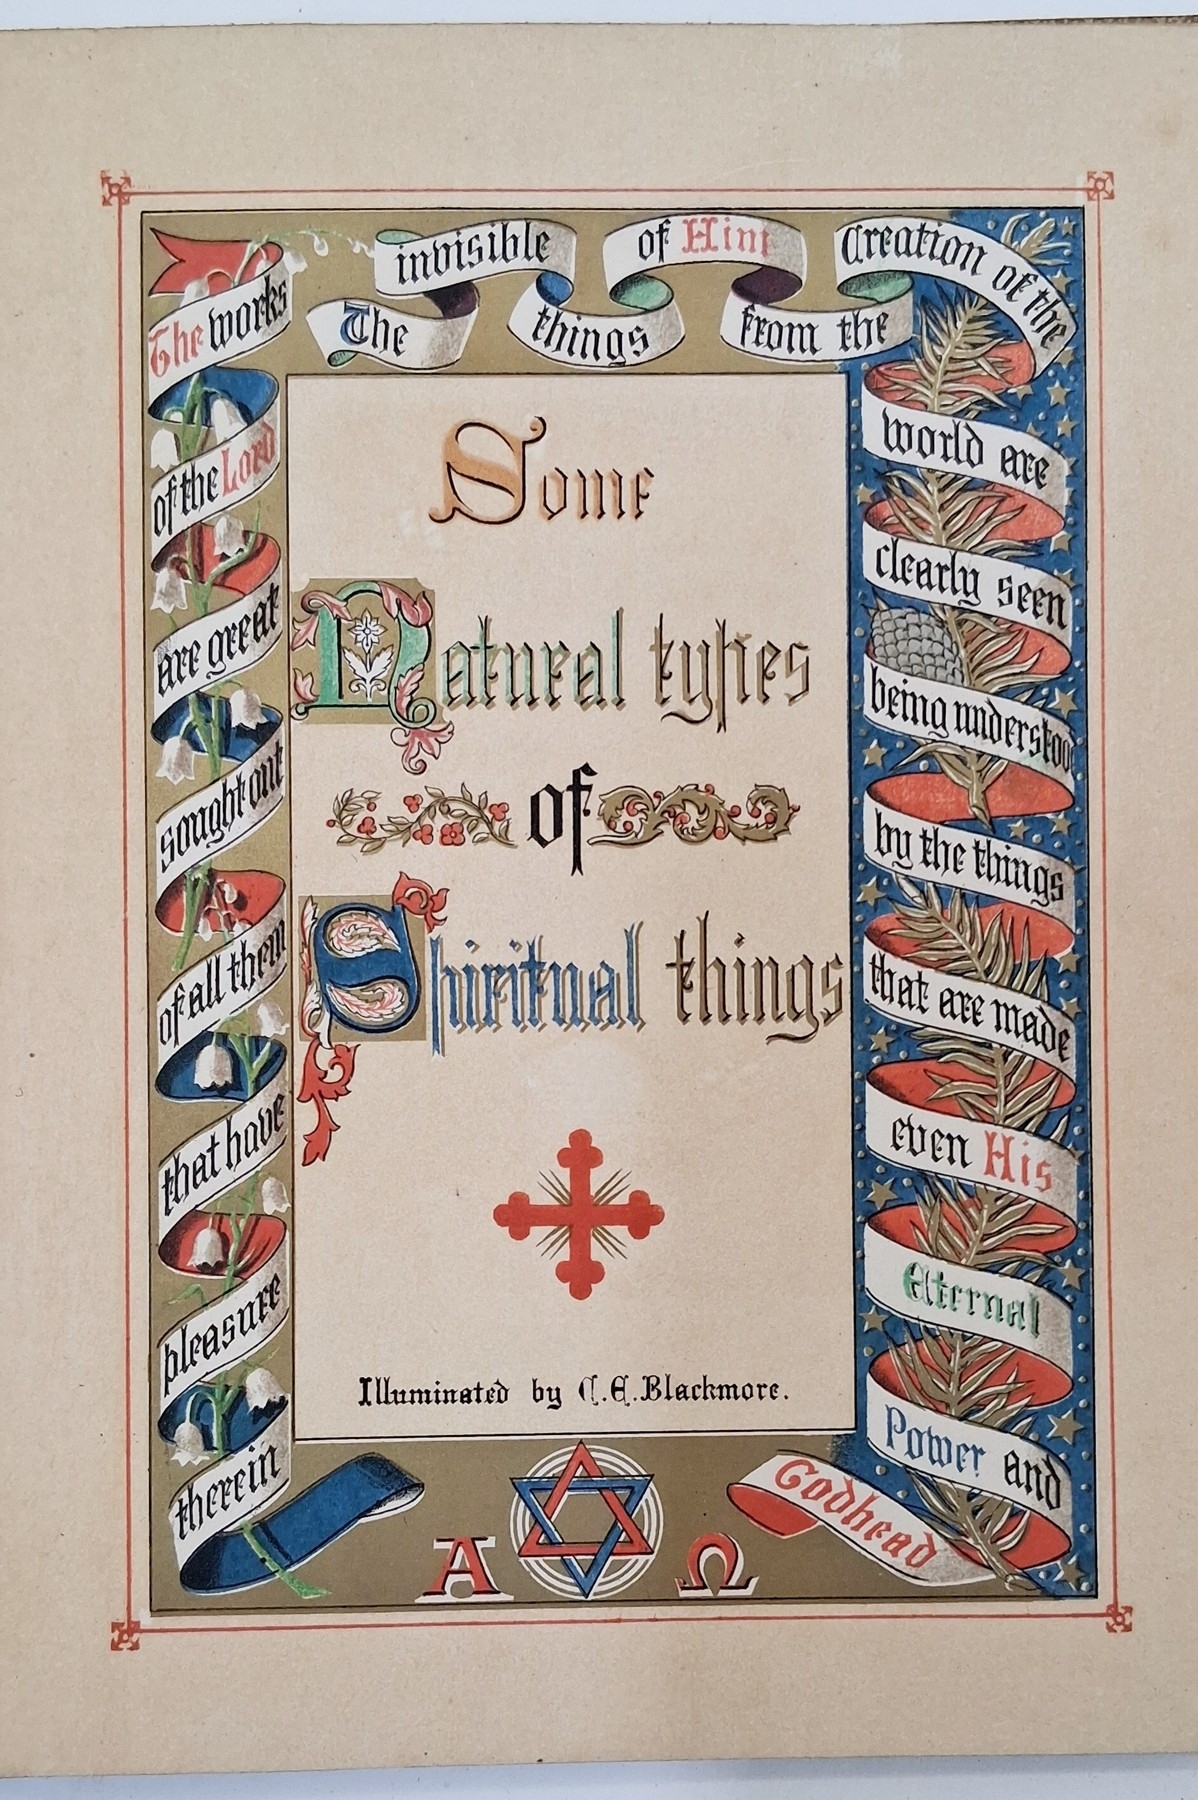 The works
of the Lord
are great
sought out
of all them
that have
pleasure
therein
The
invisible
things
of Him
from the
Creation of the
world are
clearly seen
being understoo
by the things
that are made
even His
Eternal
Power and
Godhead
Some
Natural types
of
Spiritual things
Illuminated by C. E. Blackmore.
Α Ω